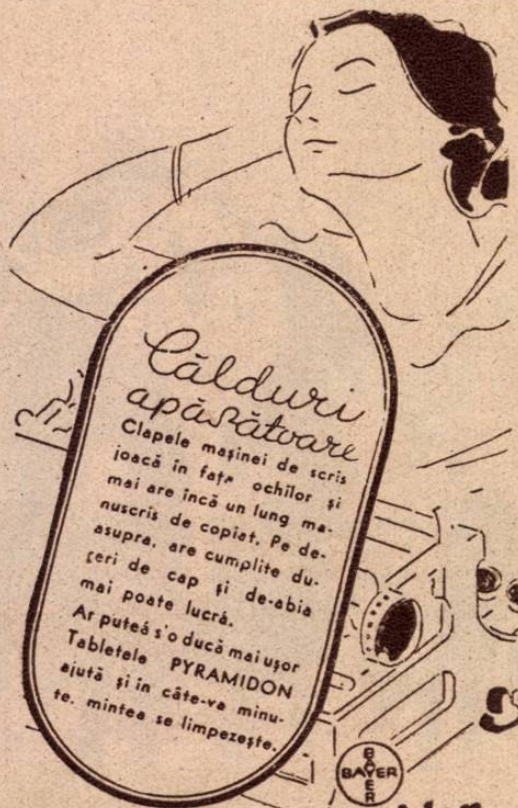 Călduri
apăsătoare
Clapele mașinei de scris
joacă în fața ochilor și
mai are încă un lung ma-
nuscris de copiat. Pe de-
asupra, are cumplite du-
reri de cap și de-abia
mai poate lucrá.
Ar puteá s'o ducă mai ușor
Tabletele PYRAMIDON
ajută și în câte-va minu-
te, mintea se limpezește.
BAYER
BAYER